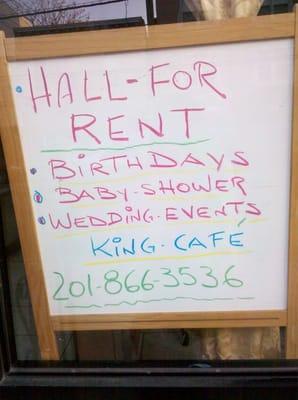 HALL-FOR
RENT
BiRTHDAYS
BABY-SHOWER
WEDDiNG-EVENTS
KiNG-CAFÉ
201-866-3536